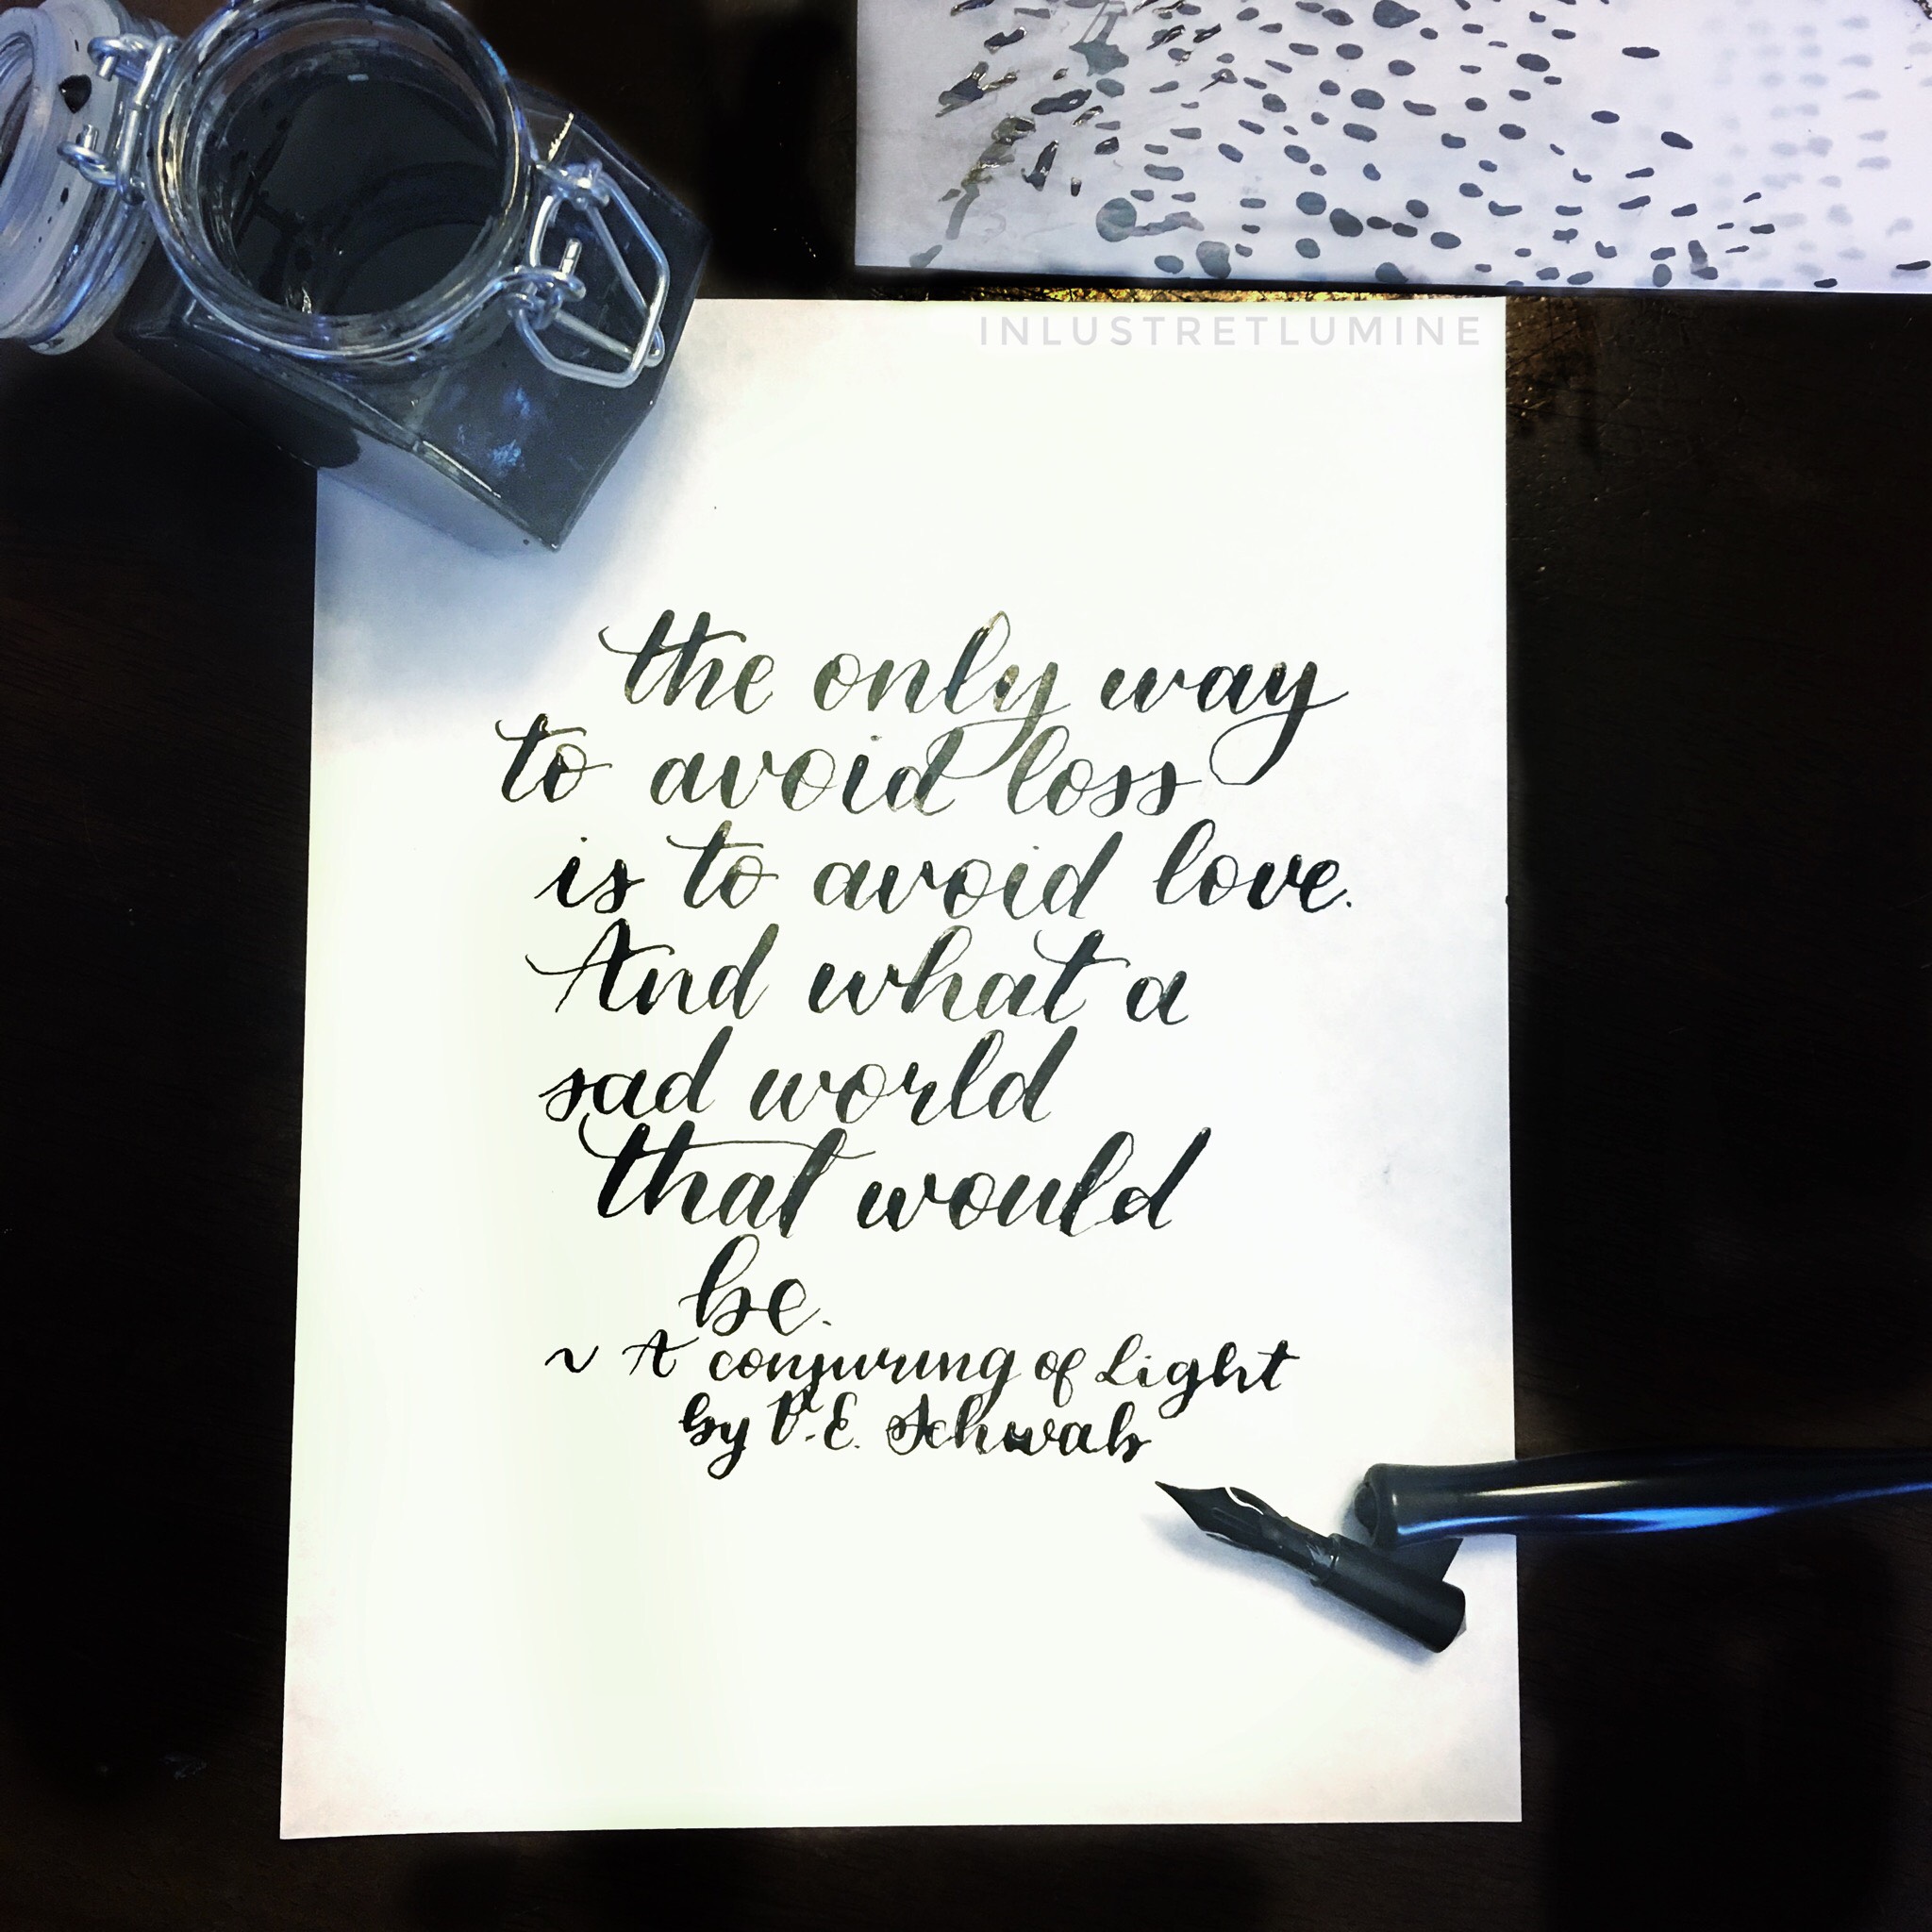 INLUSTRETLUMINE
the only way
to avoid loss
is to avoid love.
And what a
sad world
that would
be.
~ A conjuring of Light
by V.E. Schwab